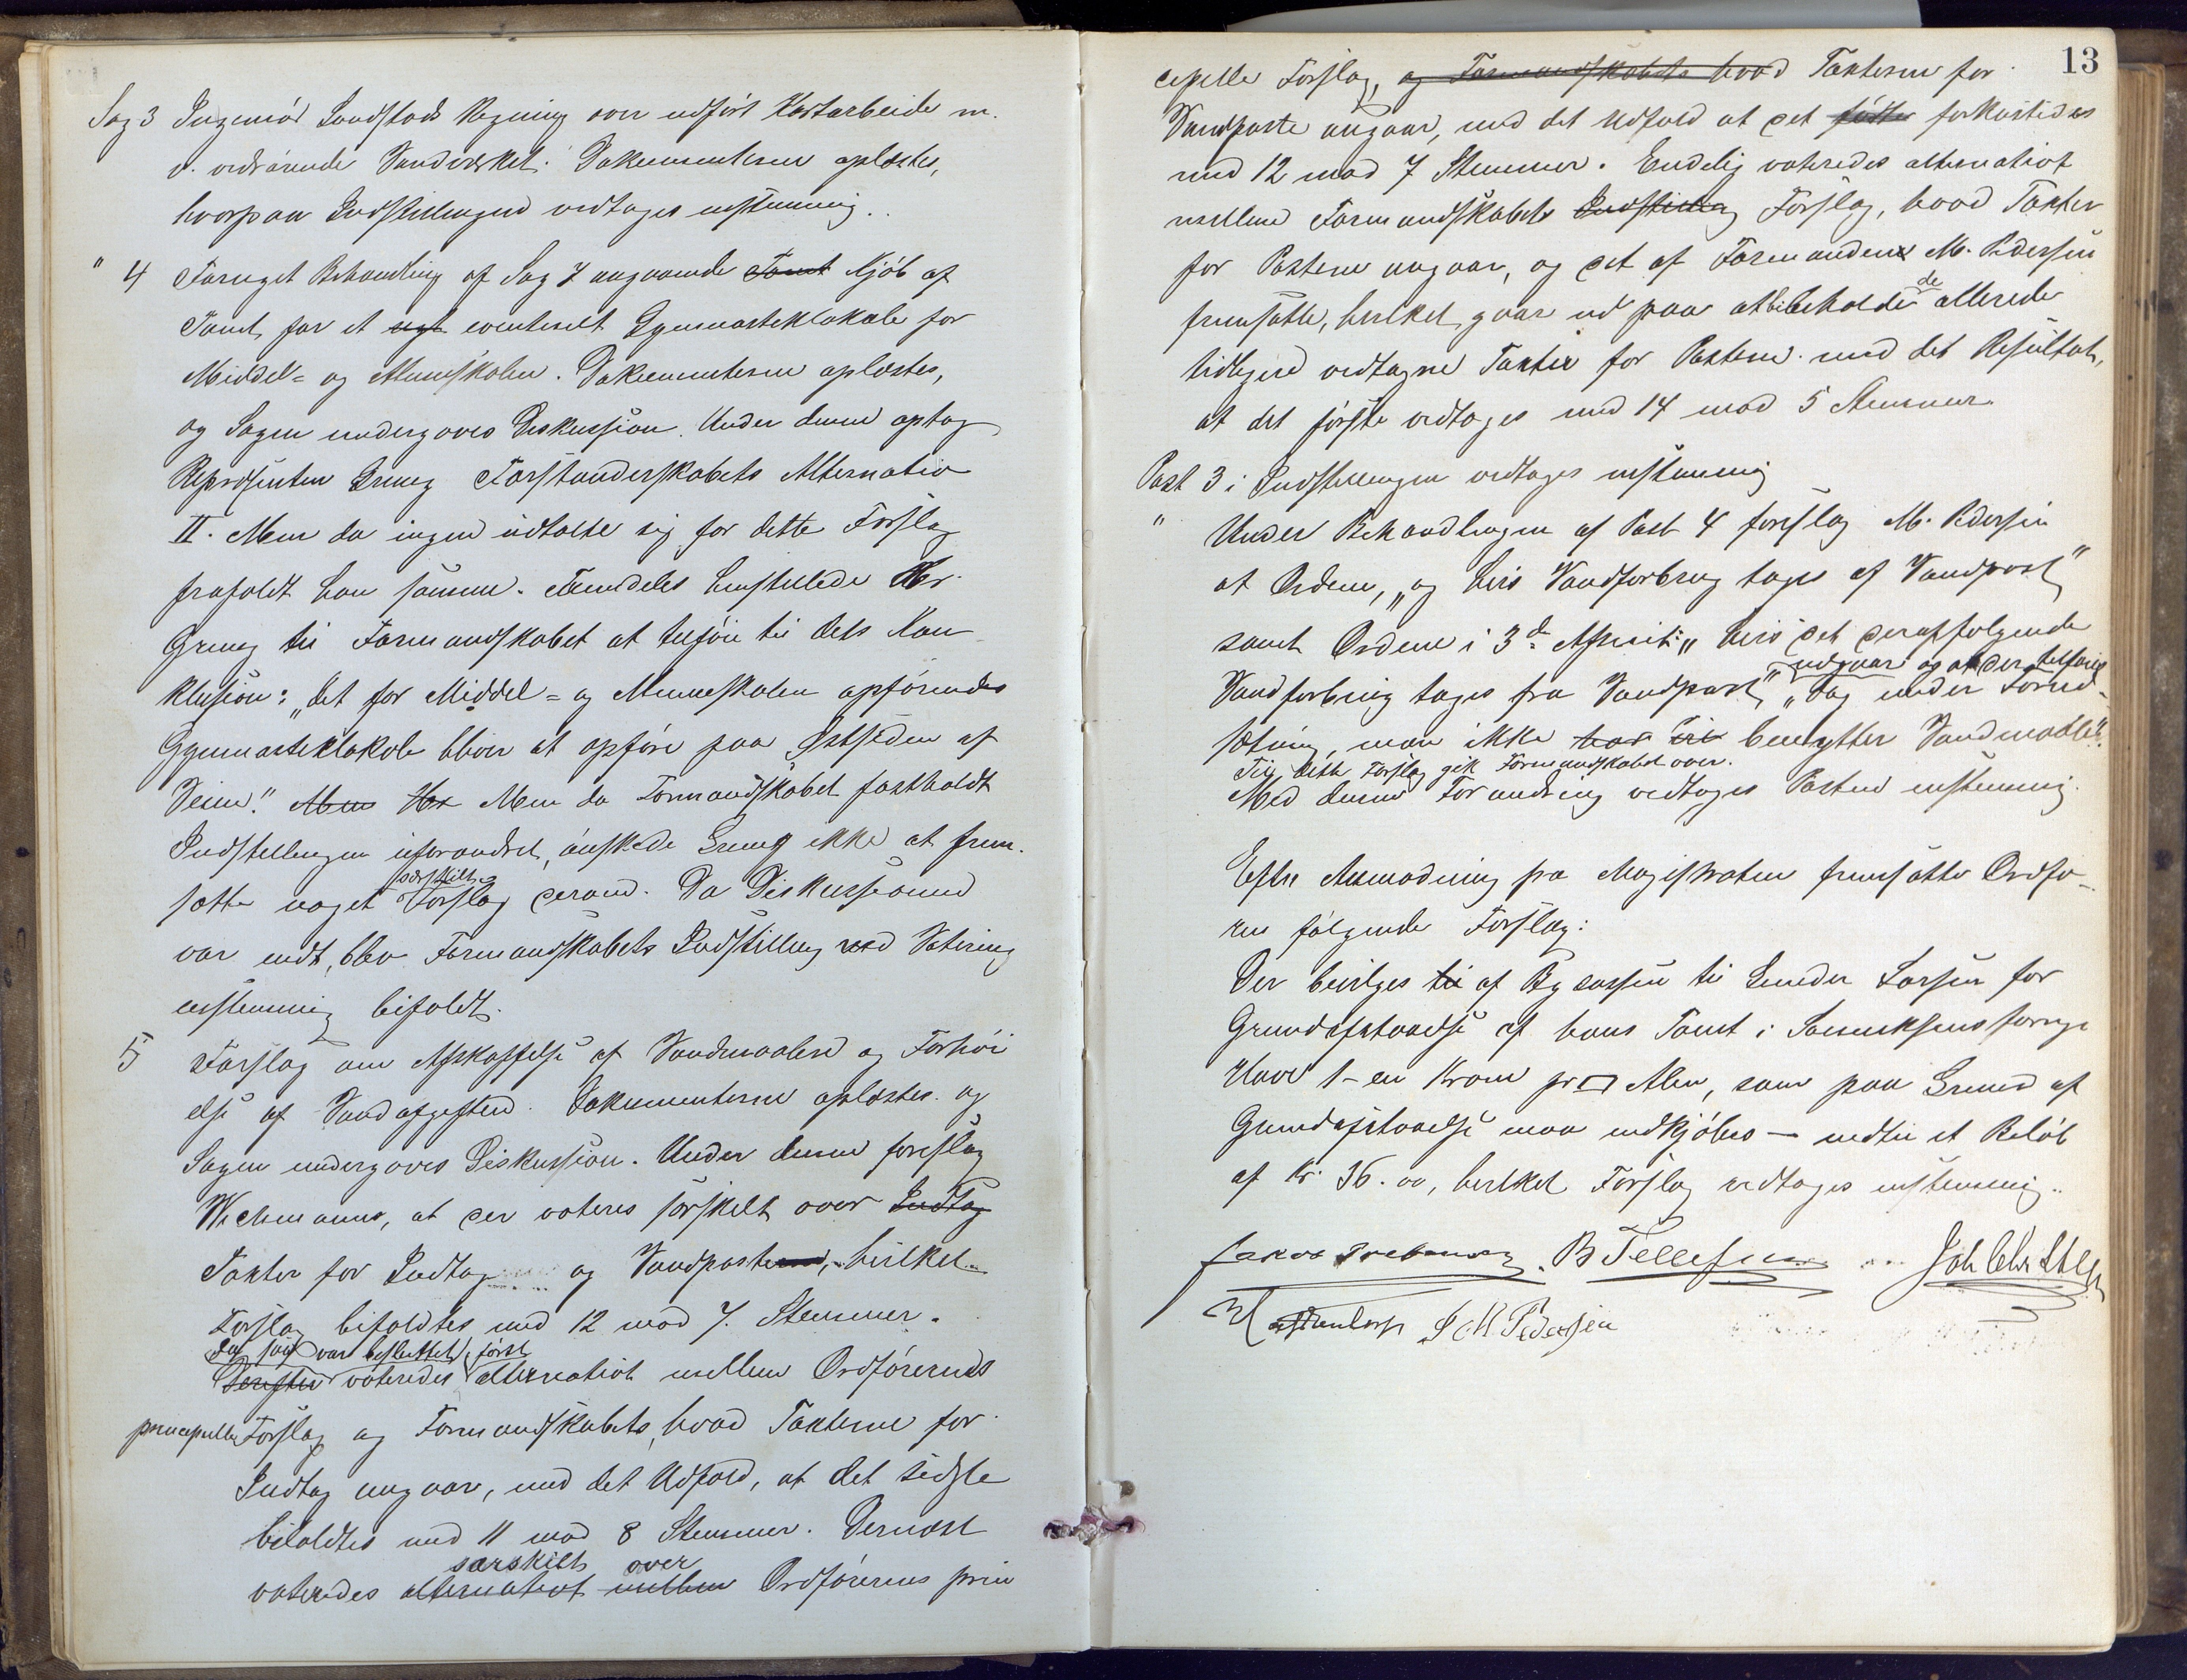 Sag 3 Ingeniør Sandstads Regning over udført Kartarbeide m.
v. vedrørende Vandværket. Dokumenterne oplæstes,
hvorpaa Indstillingen vedtoges enstemmig.
" 4 Fornyet Behandling af Sag 7 angaaende Tomt Kjøb af
Tomt for et nyt eventuelt Gymnastiklokale for
Middel= og Almueskolen. Dokumenterne oplæstes,
og Sagen undergaves Diskussion. Under denne optog
Repræsentan Grieg Forstanderskabets Alternativ
II. Men da ingen udtalte sig for dette Forslag
frafaldt han samme. Fremdeles henstillede Hr.
Grieg til Formandskabet at tilføie til dets Kon
klusion: „Det for Middel= og Almueskolen opførendes
Gymnastiklokale bliver at opføre paa Østsiden af
Veien." Men Hr Men da Formandskabet fastholdt
Indstillingen uforandret, ønskede Grieg ikke at frem-
særskilt
sætte noget Forslag derom. Da Diskussionen
var endt, blev Formandskabets Indstilling ved Votering
enstemmig bifaldt.
5 Forslag om Afskaffelse af Vandmaalere og Forhøi
else af Vandafgiften. Dokumenterne oplæstes og
Sagen undergaves Diskussion. Under denne foreslog
Wichmann, at der voteres særskilt over Indtag
Takter for Indtag og Vandposterne, hvilket
Forslag bifaldtes med 12 mod 7 Stemmer.
Da saa var besluttet, først
Derefter voteredes alternativt mellem Ordførerens
principelle Forslag og Formandskabets, hvad Takterne for
Indtag angaar, med det Udfald, at det sidste
bifaldtes med 11 mod 8 Stemmer. Dernæst
særskilt over
voteredes alternativt mellem Ordførerens prin
13
cipelle Forslag, og Formandskabets hvad Takterne for
Vandposte angaar, med det Udfald at det forkastedes
med 12 mod 7 Stemmer. Endelig voteredes alternativt
mellem Formandskabets Indstilling Forslag, hvad Takter
for Posterne angaar, og det af Formanden M. Pedersen
de
fremsatte, hvilket gaar ud paa at bibeholde allerede
tidligere vedtagne Takter for Posterne med det Resultat,
at det første vedtoges med 14 mod 5 Stemmer
Post 3 i Indstillingen vedtoges enstemmig
" Under Behandlingen af Post 4 foreslog M. Pedersen
at Ordene, „og hvis Vandforbrug tages af Vandpost"
samt Ordene i 3d Afsnit: „hvis det deraffølgende
udgaar og at der tilføies
Vandforbrug tages fra Vandpost", „dog under Forud-
sætning, man ikke har benytter Vandmaaler".
Til dette Forslag gik Formandskabet over.
Med denne Forandring vedtoges Posten enstemmig.
Efter Anmodning fra Magistraten fremsatte Ordfø-
ren følgende Forslag:
Der bevilges til af Bykassen til Gunder Larsen for
Grundafstaaelse af hans Tomt i forrige
Have 1 – en Krone pr □ Alen, som paa Grund af
Grundafstaaelse maa indkjøbes — indtil et Beløb
af Kr. 36.00, hvilket Forslag vedtoges enstemmig.
B Tellefsen
S M Pedersen